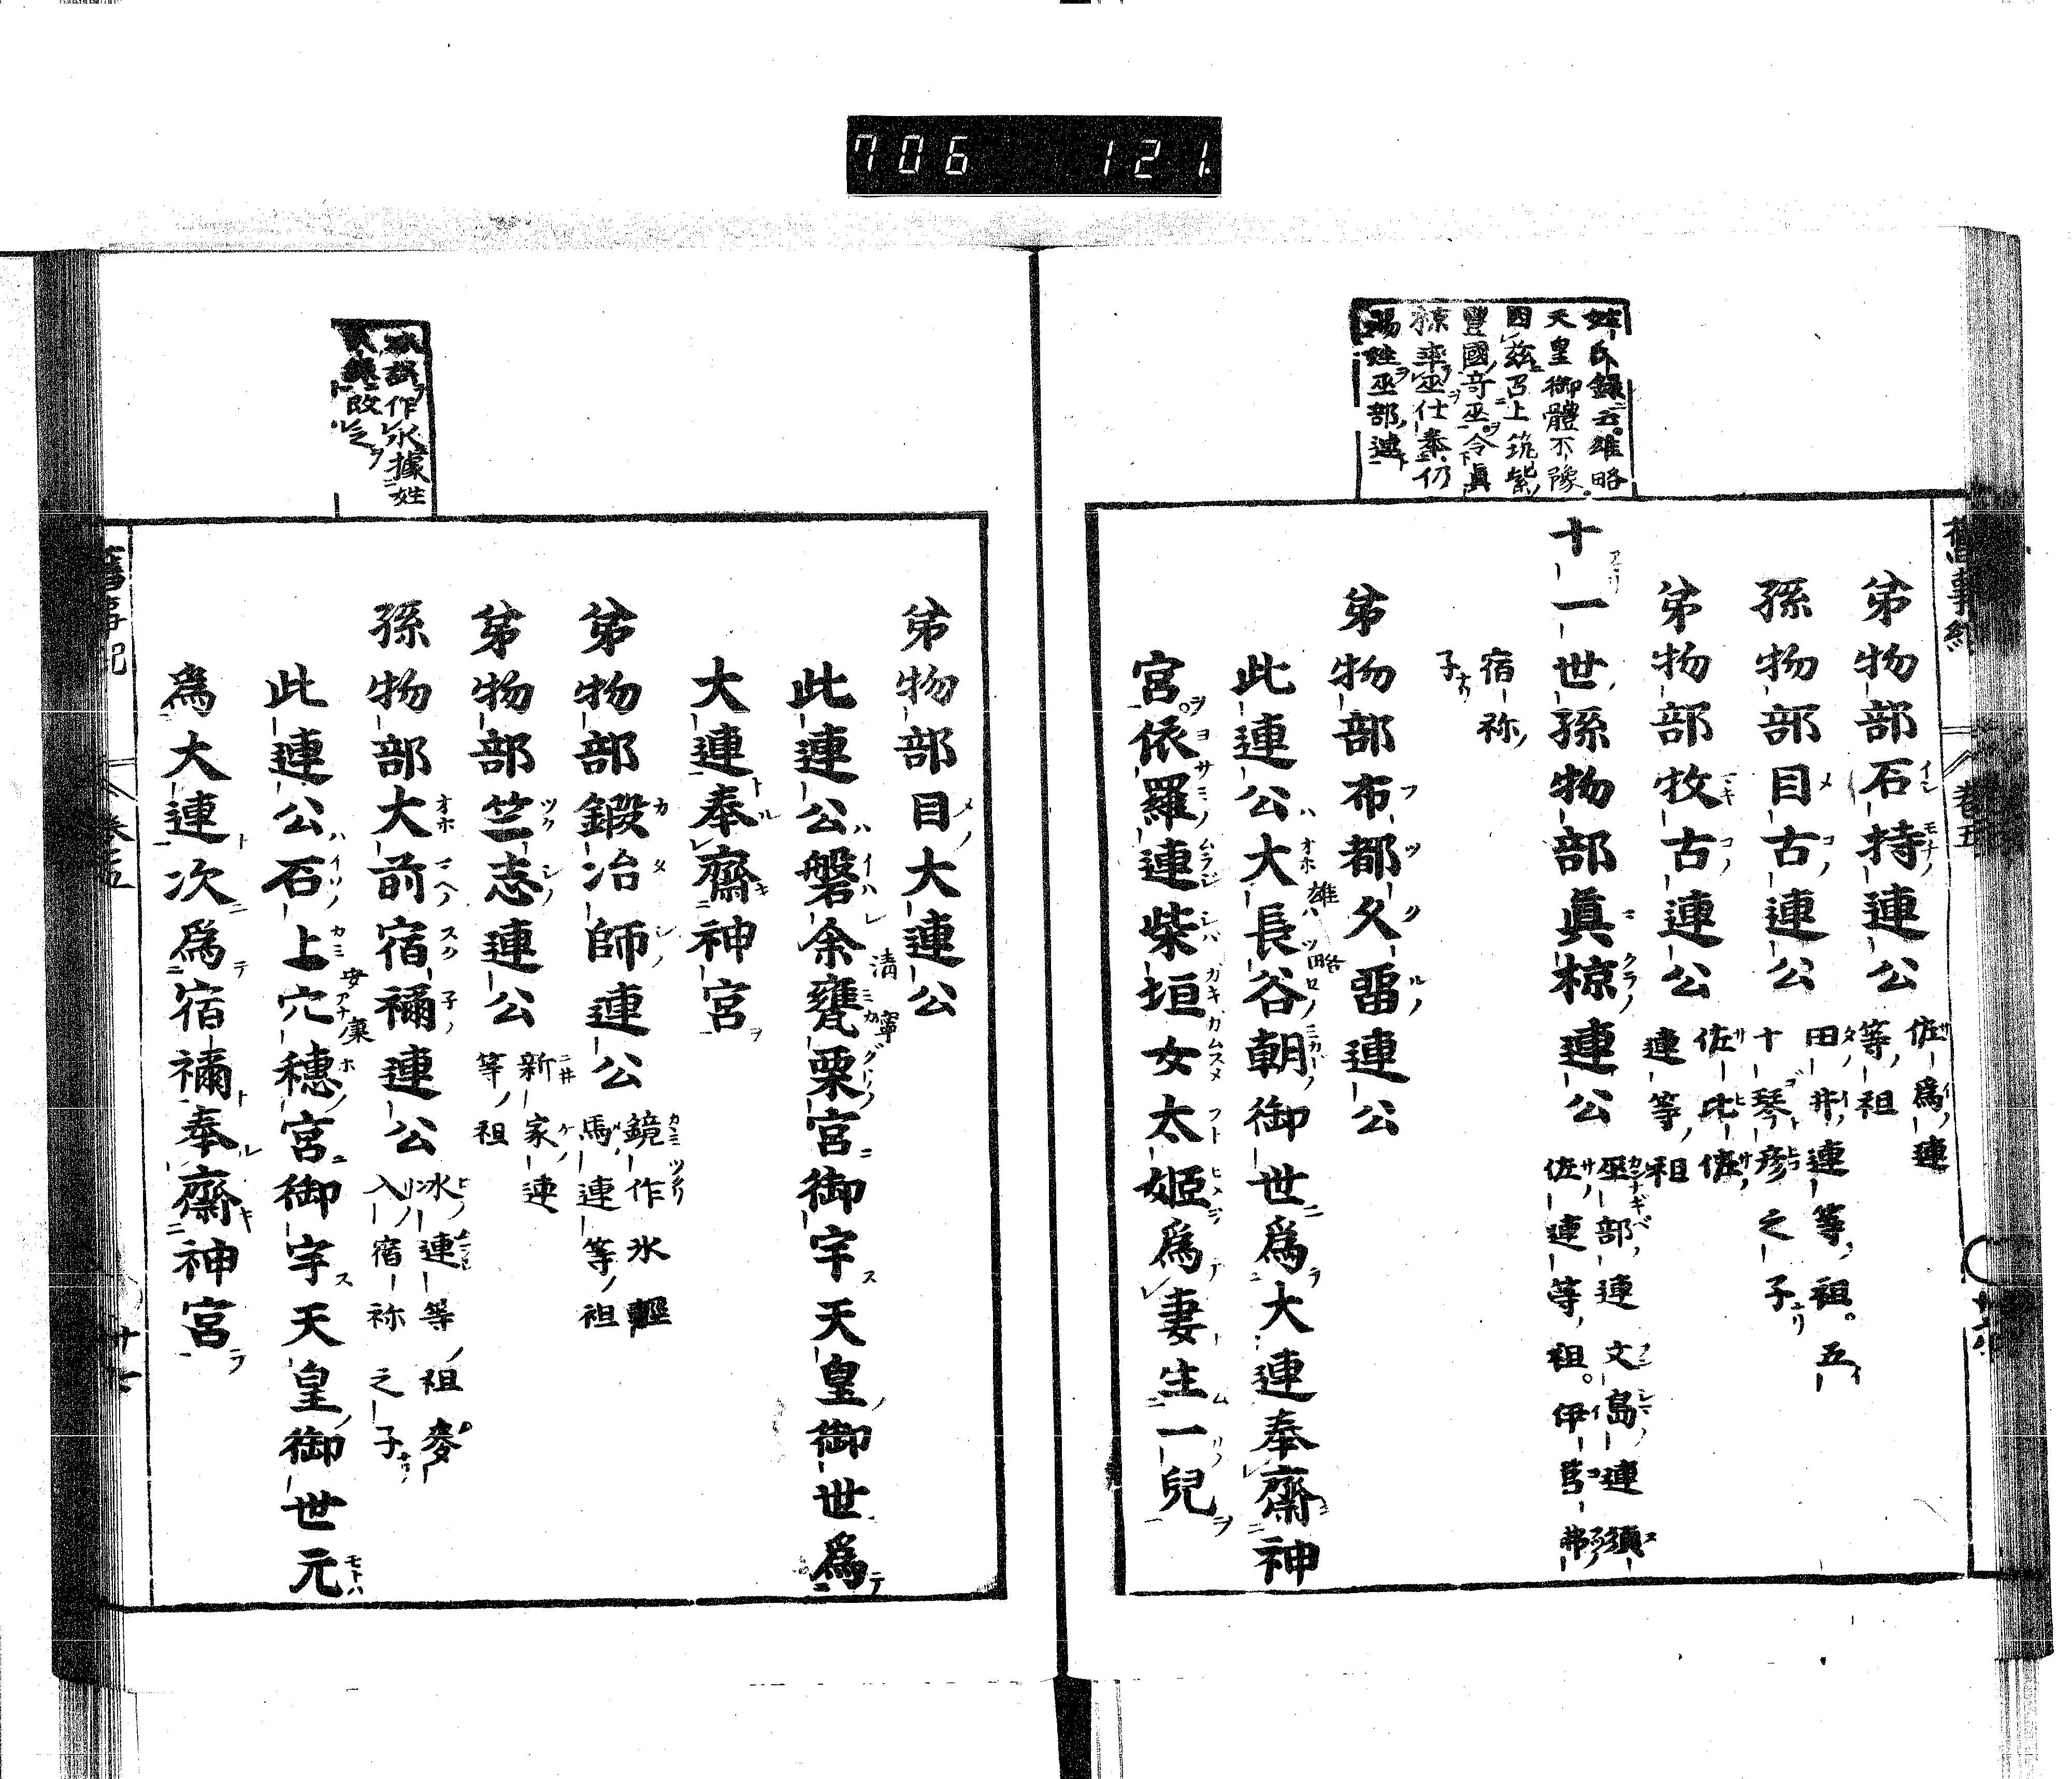 706 121
姓氏録云雄略
天皇御體不豫
因茲召上筑紫
豐國奇巫令眞
椋率巫仕奉仍
賜姓巫部連
弟物部石持連公 佐爲連
等祖
孫物部目古連公 田井連等祖五
十琴彦之子
弟物部牧古連公 佐比佐
連等祖
十一世孫物部眞椋連公 巫部連文島連須
佐連等祖伊莒弗
宿祢
子
弟物部布都久留連公
此連公大長谷朝御世爲大連奉齋神
雄略
宮依羅連柴垣女太姬爲妻生一兒
弟物部目大連公
此連公磐余甕栗宮御宇天皇御世爲
清寧
大連奉齋神宮
弟物部鍛冶師連公 鏡作氷輕
馬連等祖
弟物部竺志連公 新家連
等祖
作氷據姓
改之
孫物部大前宿禰連公 氷連等祖麥
入宿祢之子
此連公石上穴穗宮御宇天皇御世元
安康
爲大連次爲宿禰奉齋神宮
舊事紀 卷五